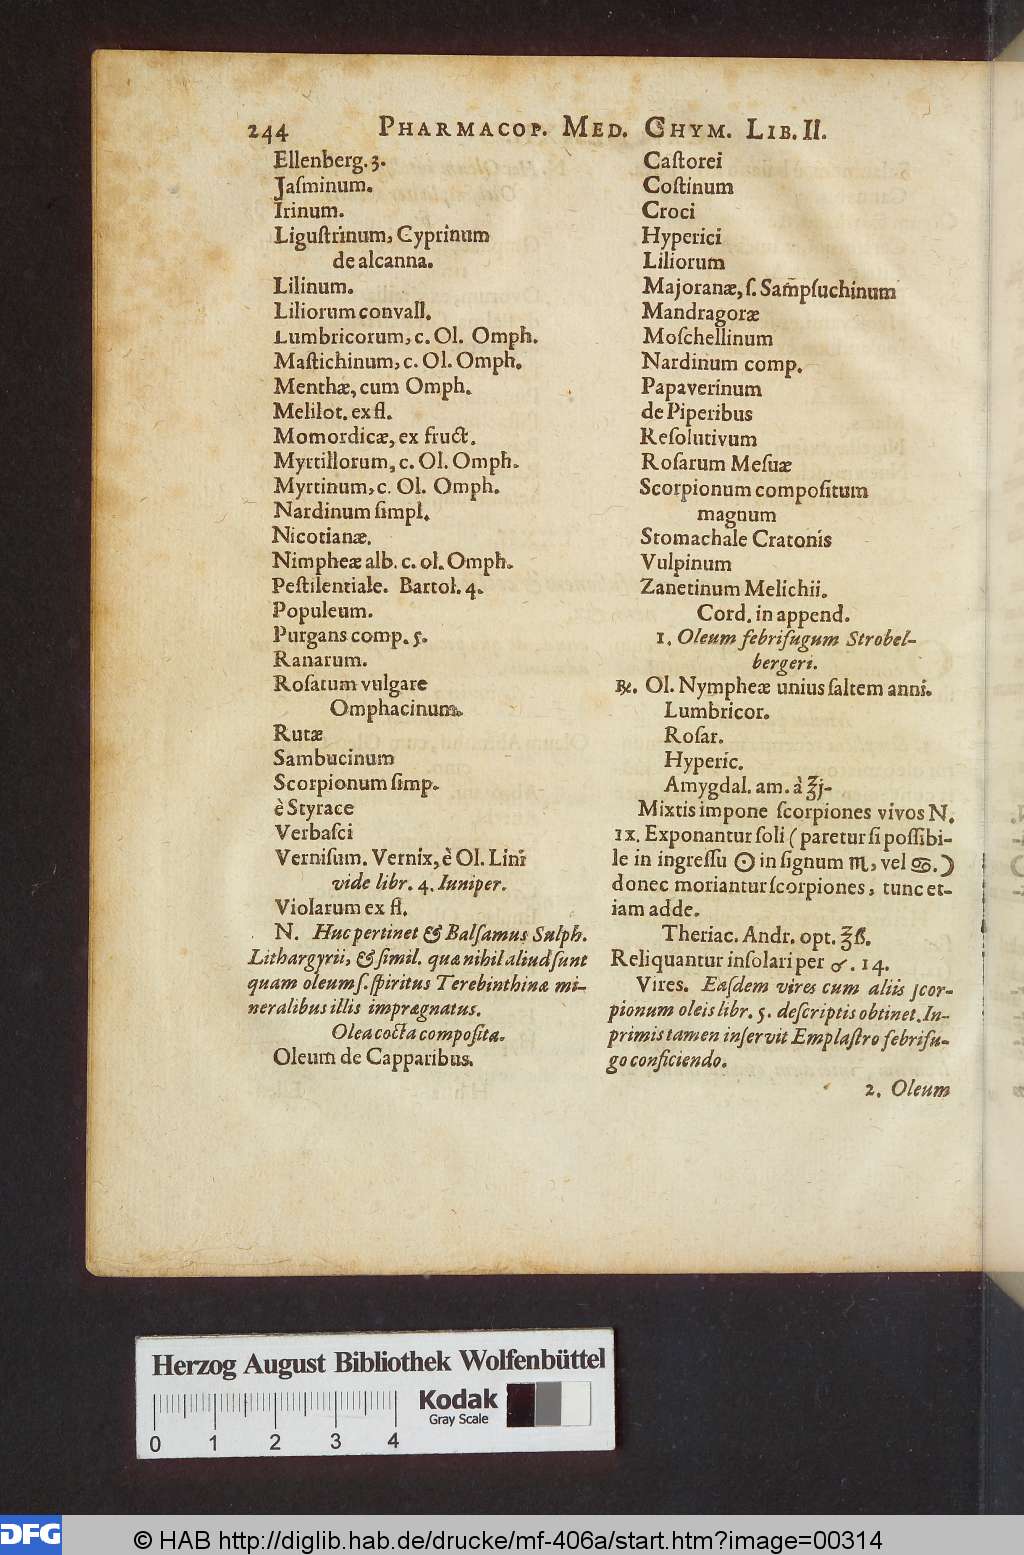 244 PHARMACOP. MED. CHYM. LIB. II.
Ellenberg. 3.
Jaſminum.
Irinum.
Liguſtrinum, Cyprinum
de alcanna.
Lilinum.
Liliorum convall.
Lumbricorum, c. Ol. Omph.
Maſtichinum, c. Ol. Omph.
Menthæ, cum Omph.
Melilot. ex fl.
Momordicæ, ex fruct.
Myrtillorum, c. Ol. Omph.
Myrtinum, c. Ol. Omph.
Nardinum ſimpl.
Nicotianæ.
Nimpheæ alb. c. ol. Omph.
Peſtilentiale. Bartol. 4.
Populeum.
Purgans comp. 5.
Ranarum.
Roſatum vulgare
Omphacinum.
Rutæ
Sambucinum
Scorpionum ſimp.
è Styrace
Verbaſci
Verniſum. Vernix, è Ol. Lini
vide libr. 4. Iuniper.
Violarum ex fl.
N. Huc pertinet & Balſamus Sulph.
Lithargyrii, & ſimil. quæ nihil aliud ſunt
quam oleum ſ. ſpiritus Terebinthinæ mi-
neralibus illis imprægnatus.
Olea cocta compoſita.
Oleum de Capparibus.
Caſtorei
Coſtinum
Croci
Hyperici
Liliorum
Majoranæ, ſ. Sam̃pſuchinum
Mandragoræ
Moſchellinum
Nardinum comp.
Papaverinum
de Piperibus
Reſolutivum
Roſarum Meſuæ
Scorpionum compoſitum
magnum
Stomachale Cratonis
Vulpinum
Zanetinum Melichii.
Cord. in append.
1. Oleum febrifugum Strobel-
bergeri.
℞. Ol. Nympheæ unius ſaltem anni.
Lumbricor.
Roſar.
Hyperic.
Amygdal. am. à ℥j-
Mixtis impone ſcorpiones vivos N.
IX. Exponantur ſoli (paretur ſi poſſibi-
le in ingreſſu ☉ in ſignum ♏, vel ♋.)
donec moriantur ſcorpiones, tunc et-
iam adde.
Theriac. Andr. opt. ℥ß.
Reliquantur inſolari per ♂. 14.
Vires. Eaſdem vires cum aliis ſcor-
pionum oleis libr. 5. deſcriptis obtinet. In-
primis tamen inſervit Emplaſtro febrifu-
go conficiendo.
2. Oleum
Herzog August Bibliothek Wolfenbüttel
0 1 2 3 4
Kodak
Gray Scale
DFG
© HAB http://diglib.hab.de/drucke/mf-406a/start.htm?image=00314